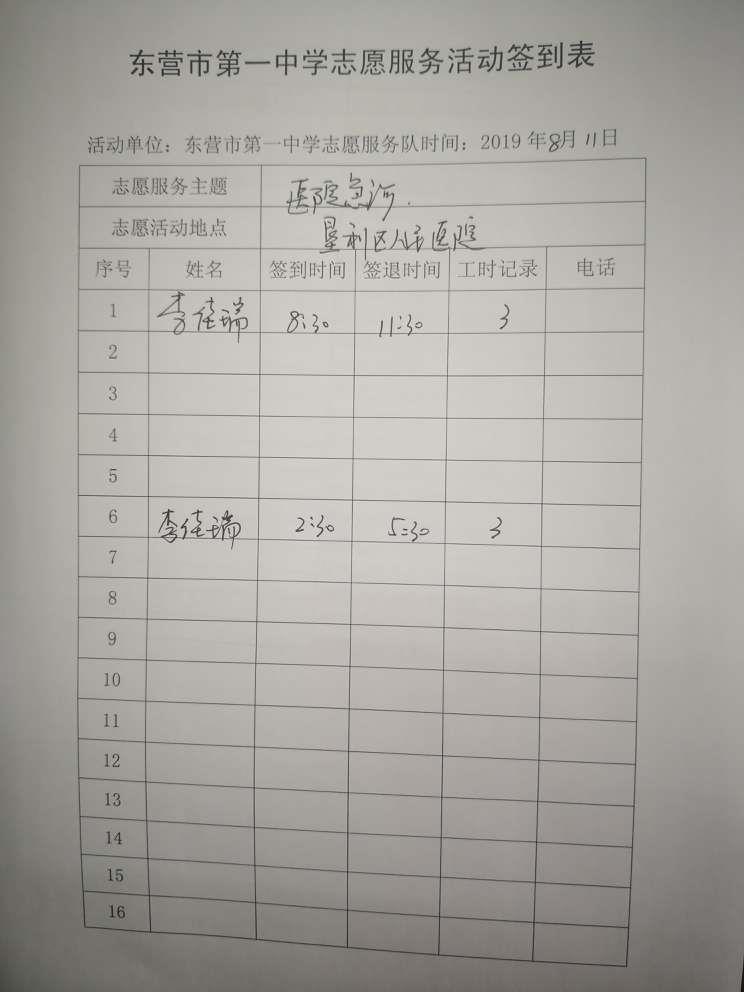 东营市第一中学志愿服务活动签到表
活动单位：东营市第一中学志愿服务队时间：2019年8月11日
志愿服务主题 医院急诊.
志愿活动地点 垦利区人民医院
序号 姓名 签到时间 签退时间 工时记录 电话
1 李佳瑞 8:30 11:30 3
2
3
4
5
6 李佳瑞 2:30 5:30 3
7
8
9
10
11
12
13
14
15
16